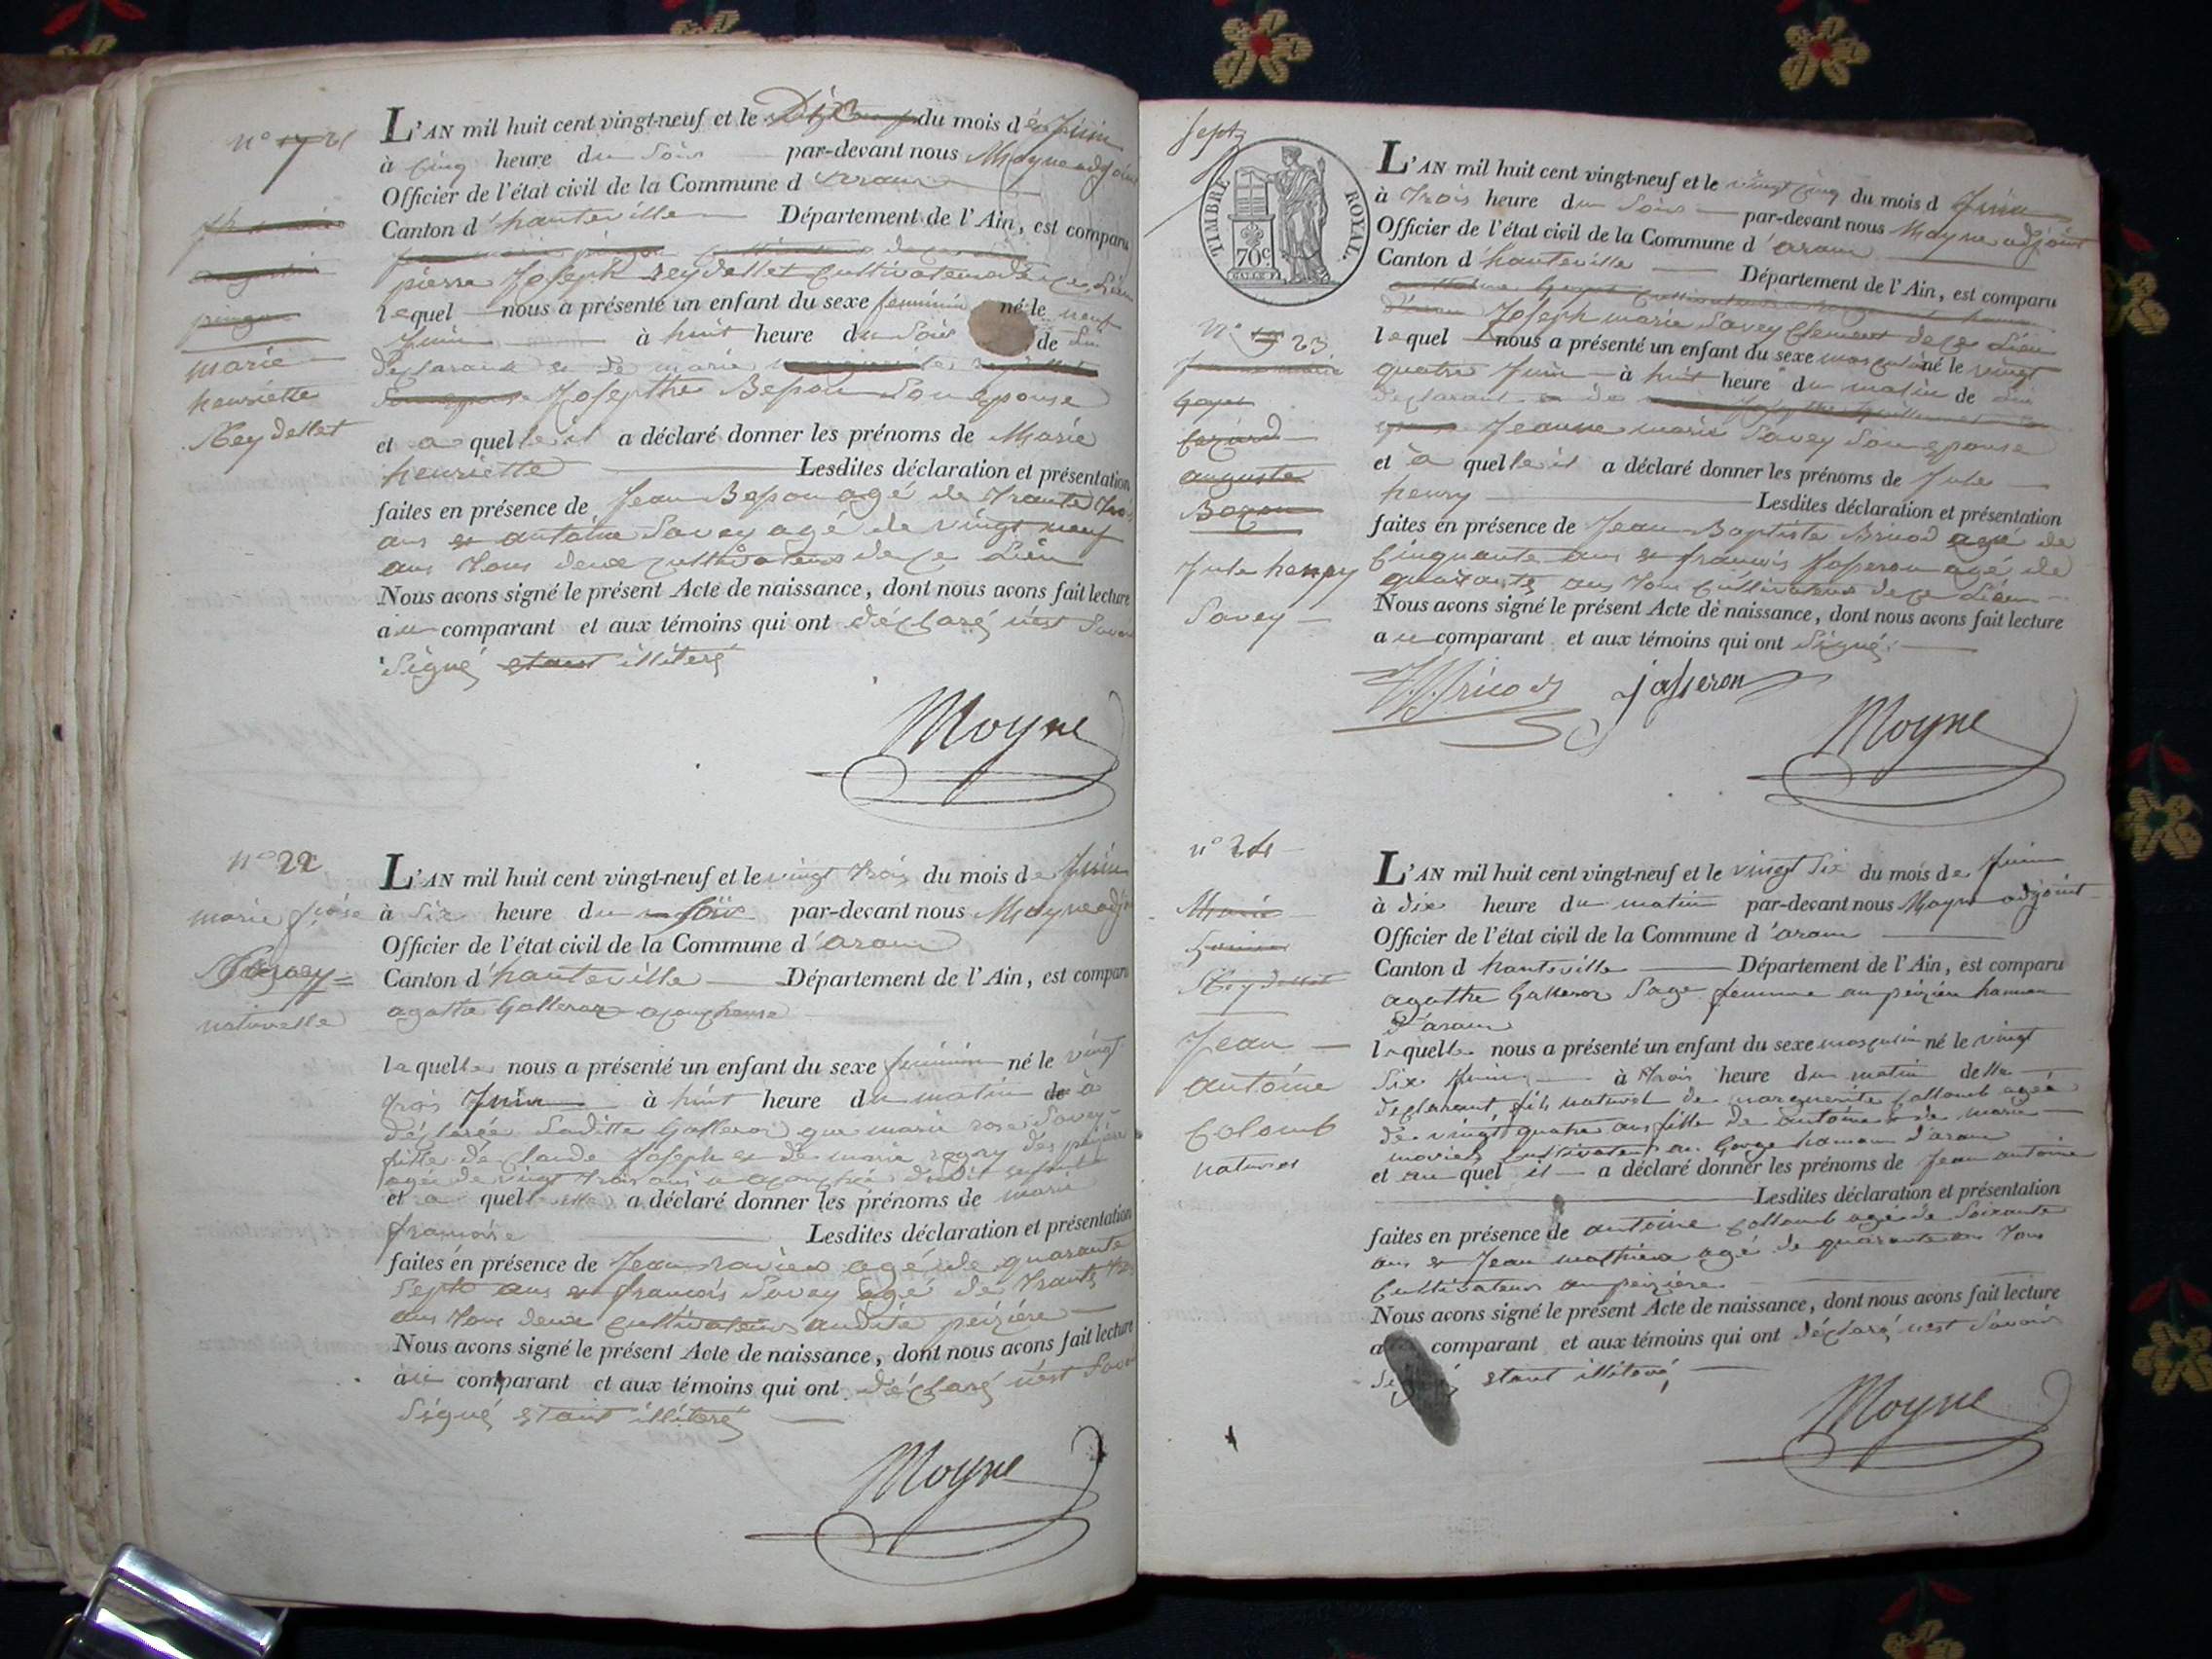 n° 21
marie
henriette
Reydellet
L'AN mil huit cent vingt-neuf et le Dix du mois de Juin
à cinq heure du soir par-devant nous Moyne adjoint
Officier de l'état civil de la Commune d'aranc
Canton d'hauteville Département de l'Ain, est comparu
pierre Joseph reydellet cultivateur de ce Lieu
lequel nous a présenté un enfant du sexe feminin né le neuf
Juin à huit heure du soir de du
declarant et de marie
Josepthe Besson son epouse
et a quel il a déclaré donner les prénoms de Marie
henriette Lesdites déclaration et présentation
faites en présence de Jean Besson agé de trante trois
ans et antoine Savey agé de vingt neuf
ans tous deux cultivateurs de ce Lieu
Nous avons signé le présent Acte de naissance, dont nous avons fait lecture
au comparant et aux témoins qui ont déclaré n'est savoir
signé etant illiteré
Moyne
n° 22
marie fçoise
Savey
naturelle
L'AN mil huit cent vingt-neuf et le vingt trois du mois de Juin
à six heure du soir par-devant nous Moyne adjt
Officier de l'état civil de la Commune d'aranc
Canton d'hauteville Département de l'Ain, est comparu
agatha Galleron acoucheuse
laquelle nous a présenté un enfant du sexe feminin né le vingt
trois Juin à huit heure du matin à
déclarée Laditte Galleron que marie rose Savey
fille de claude Joseph et de marie
agée de vingt trois ans a acouchée dudit enfant
et a quel elle a déclaré donner les prénoms de marie
françoise Lesdites déclaration et présentation
faites en présence de Jean ravier agé de quarante
sept ans et françois Savey agé de trante
ans tous deux cultivateurs audite peizière
Nous avons signé le présent Acte de naissance, dont nous avons fait lecture
au comparant et aux témoins qui ont déclaré n'est savoir
signé etant illiteré
Moyne
sept
TIMBRE ROYAL.
70c
n° 23
auguste
Jule henry
Savey
L'AN mil huit cent vingt-neuf et le vingt cinq du mois d Juin
à trois heure du soir par-devant nous Moyne adjoint
Officier de l'état civil de la Commune d'aranc
Canton d'hauteville Département de l'Ain, est comparu
Joseph marie Savey Clement de ce Lieu
lequel nous a présenté un enfant du sexe masculin né le vingt
quatre Juin à huit heure du matin de du
declarant et de
Jeanne marie Savey son epouse
et à quel il a déclaré donner les prénoms de Jules
henry Lesdites déclaration et présentation
faites en présence de Jean Baptiste Bricod agé de
cinquante ans et françois Jasseron agé de
quarante ans tous cultivateurs de ce Lieu
Nous avons signé le présent Acte de naissance, dont nous avons fait lecture
au comparant et aux témoins qui ont signé
J. B. Bricod jasseron
Moyne
n° 24
Marie
Reydellet
Jean
antoine
Colomb
naturel
L'AN mil huit cent vingt-neuf et le vingt six du mois de Juin
à dix heure du matin par-devant nous Moyne adjoint
Officier de l'état civil de la Commune d'aranc
Canton d hauteville Département de l'Ain, est comparu
agathe Galleron Sage femme au peizière hameau
d'aranc
laquelle nous a présenté un enfant du sexe masculin né le vingt
six Juin à trois heure du matin de la
declarant, fils naturel de marguerite Collomb agée
de vingt quatre ans fille de antoine et de marie
cultivateurs au Gorge hameau d'aranc
et auquel il a déclaré donner les prénoms de Jean antoine
Lesdites déclaration et présentation
faites en présence de antoine Collomb agé de soixante
ans et Jean mathieu agé de quarante ans tous
Cultivateurs au peizière
Nous avons signé le présent Acte de naissance, dont nous avons fait lecture
comparant et aux témoins qui ont déclaré n'est savoir
etant illiteré
Moyne